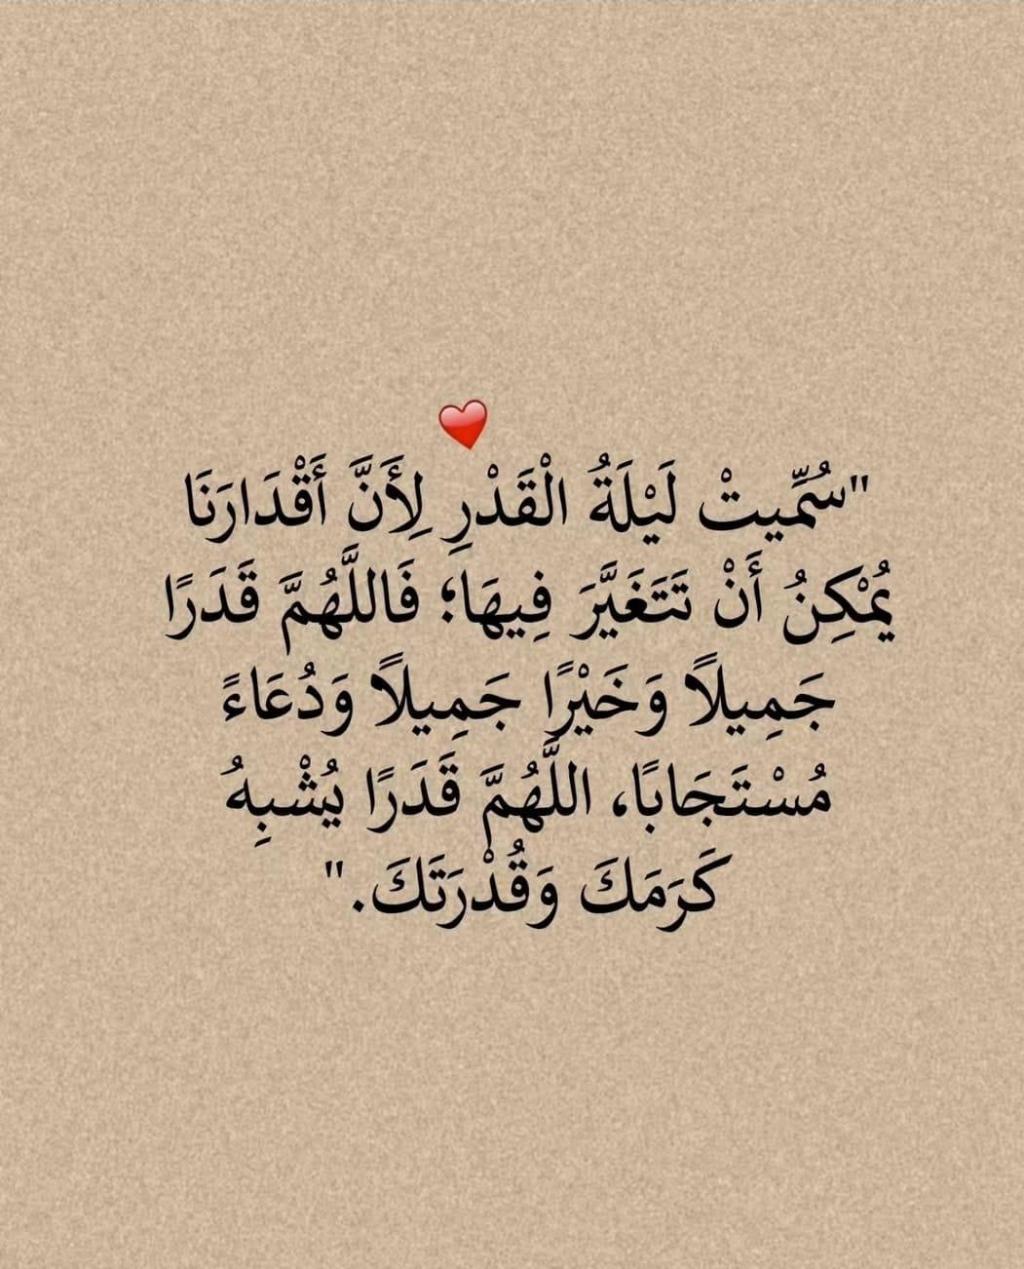 "سُمِّيتْ لَيْلَةُ الْقَدْرِ لِأَنَّ أَقْدَارَنَا
يُمْكِنُ أَنْ تَتَغَيَّرَ فِيهَا؛ فَاللَّهُمَّ قَدَرًا
جَمِيلاً وَخَيْرًا جَمِيلاً وَدُعَاءً
مُسْتَجَابًا، اللَّهُمَّ قَدَرًا يُشْبِهُ
كَرَمَكَ وَقُدْرَتَكَ."